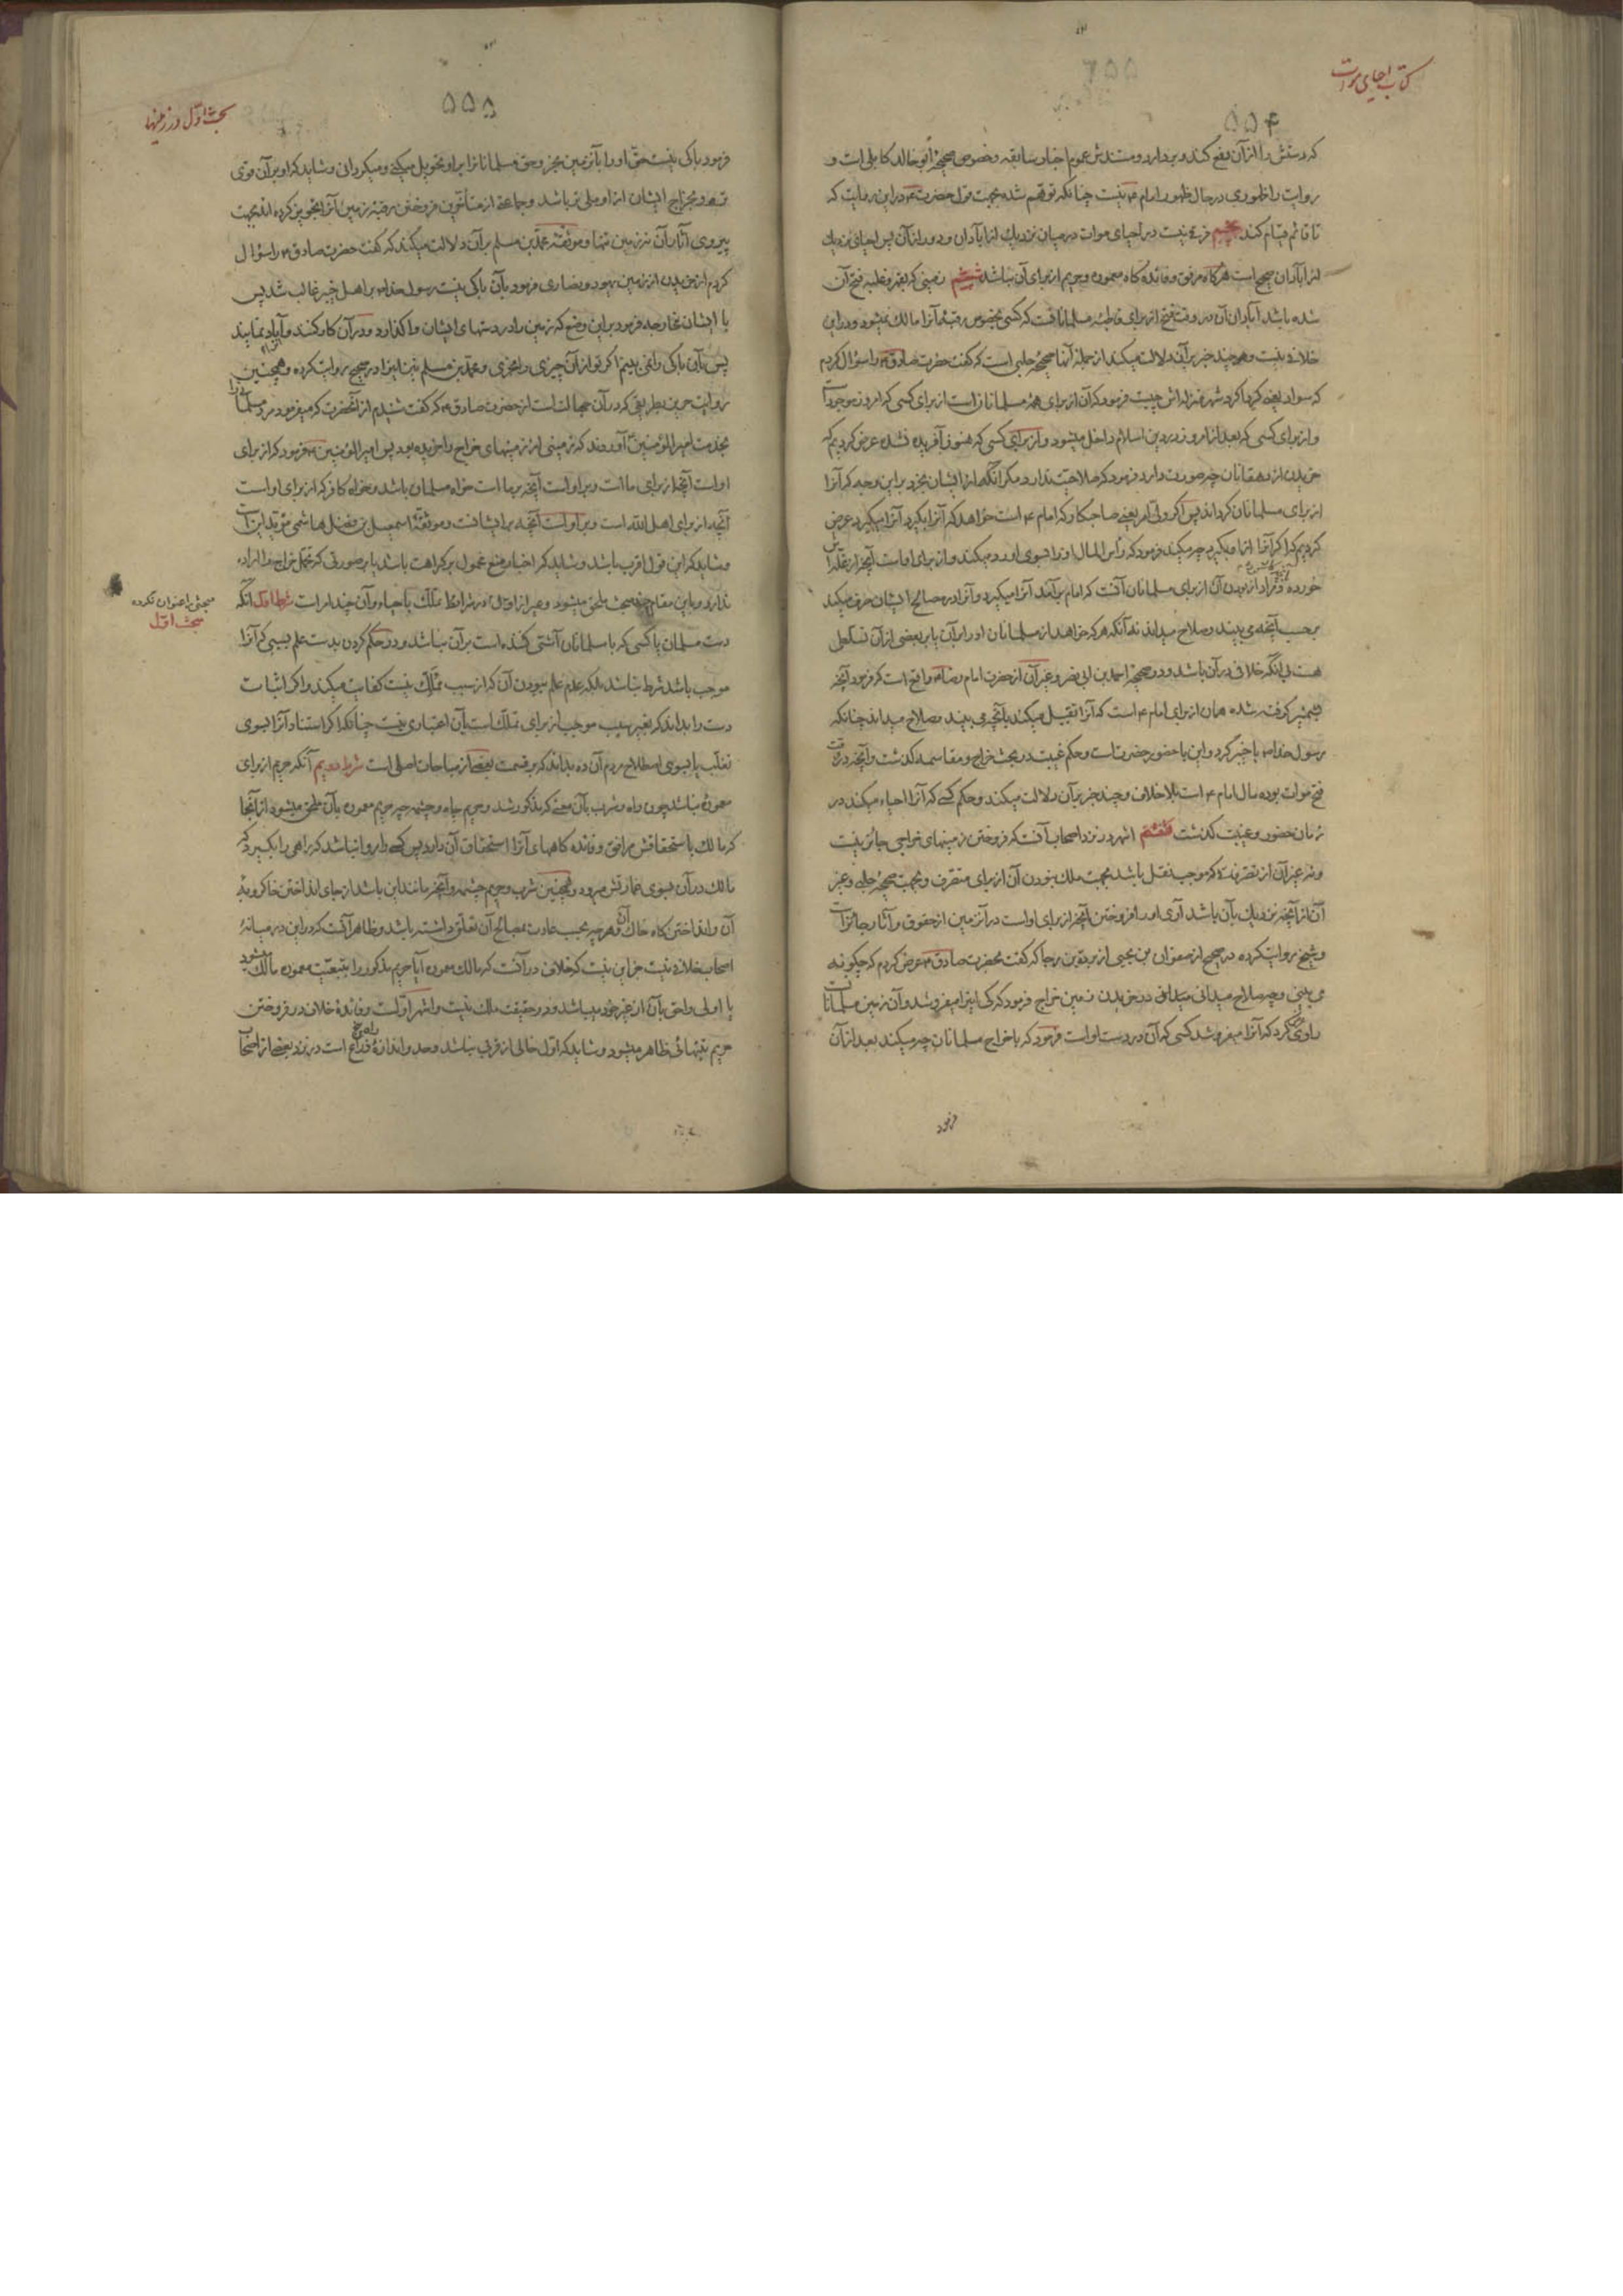 کتاب احیای موات
۵۵۴
که دستش را از آن دفع کند و بر دارد و مستندش عموم اخبار سابقه و خصوص صحیحهٔ ابو خالد کابلی است و
روایت را ظهوری در حال ظهور امام ع نیست چنانکه توهم شده بجهت قول حضرت ع در این روایت که
تا قائم قیام کند پنجم فرقی نیست در احیای موات در میان نزدیک از آبادان و دور از آن پس احیای نزدیک
از آبادان صحیح است هرگاه مرفق و فائده گاه معموره و حریم از برای آن نباشد ششم زمینی که بقهر و غلبه فتح آن
شده باشد آبادان آن در وقت فتح از برای قاطبهٔ مسلمانانست که کسی بخصوص رقبهٔ آنرا مالک نمیشود و در این
خلافی نیست و هر چند خبر بر آن دلالت میکند از جملهٔ آنها صحیحهٔ حلبی است که گفت حضرت صادق ع را سؤال کردم
که سواد یعنی گرداگرد شهر منزله‌اش چیست فرمود که آن از برای همهٔ مسلمانان است از برای کسی که امروز موجود است
و از برای کسی که بعد از امروز در دین اسلام داخل میشود و از برای کسی که هنوز آفریده نشده عرض کردیم که
خریدن از دهقانان چه صورت دارد فرمود که صلاحیت ندارد مگر آنکه از ایشان بخرد بر این وجه که آنرا
از برای مسلمانان گرداند پس اگر ولی امر یعنی صاحبکار که امام ع است خواهد که آنرا بگیرد آنرا میگیرد عرض
کردیم که اگر آنرا از او بگیرد چه میکند فرمود که رأس المال او را بسوی او رد میکند و از برای اوست آنچه از غله‌اش
خورده از برای مسلمانان آنست که امام بر آمد آنرا میگیرد و آنرا در مصالح ایشان صرف میکند
بر حسب آنچه می‌بیند و صلاح میداند نه آنکه هر که خواهد از مسلمانان او را بر آن یا بر بعضی از آن تسلطی
هست بی‌آنکه خلافی در آن باشد و در صحیحهٔ احمد بن ابی نصر و غیر آن از حضرت امام رضا ع واقع است که فرمود آنچه
بشمشیر گرفته شده همان از برای امام ع است که آنرا تقبیل میکند بآنچه می‌بیند و صلاح میداند چنانکه
رسول خدا ص با خیبر کرد و این با حضور حضرتست و حکم غیبت در بحث خراج و مقاسمه گذشت و آنچه در وقت
فتح موات بوده مال امام ع است بلا خلاف و چند خبر بر آن دلالت میکند و حکم کسی که آنرا احیاء میکند در
زمان حضور و غیبت گذشت هفتم اشهر در نزد اصحاب آنست که فروختن زمینهای خراجی جائز نیست
و نه غیر آن از تصرفاتی که موجب نقل باشد بجهت ملک نبودن آن از برای متصرف و بجهت صحیحهٔ حلبی و غیر
آن از آنچه نزدیک بآن باشد آری او را فروختن آنچه از برای اوست در آنزمین از حقوق و آثار جائز است
و شیخ روایت کرده در صحیح از صفوان بن یحیی از بردة بن رجا که گفت بحضرت صادق ع عرض کردم که چگونه
می‌بینی و چه صلاح میدانی در خریدن زمین خراج فرمود که کی اینرا میفروشد و آن زمین مسلمانانست
راوی عرض کرد که آنرا میفروشد کسی که آن در دست اوست فرمود که با خراج مسلمانان چه میکند بعد از آن
فرمود
بحث اول در زمینها
۵۵۵
فرمود باکی نیست حق او را بآنزمین بخر و حق مسلمانانرا بر او تحویل میکنی و میگردانی و شاید که او بر آن قوی
تر و بخراج ایشان از او ملی‌تر باشد و جماعتی از متأخرین فروختن رقبهٔ زمین را تجویز کرده‌اند بجهت
پیروی آثار آن نه زمین تنها و موثقهٔ محمد بن مسلم بر آن دلالت میکند که گفت حضرت صادق ع را سؤال
کردم از خریدن از زمین یهود و نصاری فرمود بآن باکی نیست رسول خدا ص بر اهل خیبر غالب شد پس
با ایشان مخارجه فرمود بر این وضع که زمین را در دستهای ایشان واگذارد و در آن کار کنند و آباد نمایند
پس بآن باکی را نمی‌بینم اگر تو از آن چیزی را بخری و محمد بن مسلم نیز اینرا در صحیح روایت کرده و همچنین
روایت حریز بطریقی که در آن جهالت است از حضرت صادق ع که گفت شنیدم از آنحضرت که میفرمود مرد مسلمانی را
بخدمت امیر المؤمنین ع آوردند که زمینی از زمینهای خراج را خریده بود پس امیر المؤمنین ع فرمود که از برای
اوست آنچه از برای ماست و بر اوست آنچه بر ما است خواه مسلمان باشد و خواه کافر که از برای اوست
آنچه از برای اهل الله است و بر اوست آنچه بر ایشانست و موثقهٔ اسمعیل بن فضل هاشمی مؤید اینست
و شاید که این قول اقرب باشد و شاید که اخبار منع محمول بر کراهت باشد یا بر صورتی که تحمل خراج را اراده
ندارد و باین مقام چند بحث ملحق میشود و غیر از اول در شرائط تملک باحیاء و آن چند امر است شرط اول آنکه
مبحثی را عنوان نکرده
بحث اول
دست مسلمان یا کسی که با مسلمانان آشتی کننده است بر آن نباشد و در حکم کردن بدست علم بسببی که آنرا
موجب باشد شرط نباشد بلکه عدم علم نبودن آن که از سبب تملک نیست کفایت میکند و اگر اثبات
دست را بداند که بغیر سبب موجب از برای تملک است بآن اعتباری نیست چنانکه اگر استناد آنرا بسوی
تغلب یا بسوی اصطلاح مردم آن ده بداند که بر قسمت بعضی از مباحات اصلی است شرط دویم آنکه حریم از برای
معموره نباشد چون راه و شرب بآن معنی که مذکور شد و حریم چاه و چشمه چه حریم معموره بآن ملحق میشود از آنجا
که مالک باستحقاقش مرافق و فائده گاههای آنرا استحقاق آن دارد پس کسی را روا نباشد که راهی را بگیرد که
مالک در آن بسوی عمارتش میرود و همچنین شرب و حریم چشمه و آنچه مانند این باشد از جای انداختن خاکروبهٔ
آن و انداختن گاه خاک آن و هر چه بحسب عادت بمصالح آن تعلق داشته باشد و ظاهر آنست که در این در میانهٔ
اصحاب خلافی نیست جز این نیست که خلاف در آنست که مالک معموره آیا حریم مذکور را بتبعیت معموره مالک میشود
یا اولی و احق بآن از غیر خود میباشد و در حقیقت ملک نیست و اشهر اولست و فائدهٔ خلاف در فروختن
حریم بتنهائی ظاهر میشود و شاید که اول خالی از قربی نباشد و حد و اندازهٔ راهی فراخ است در نزد بعضی از اصحاب